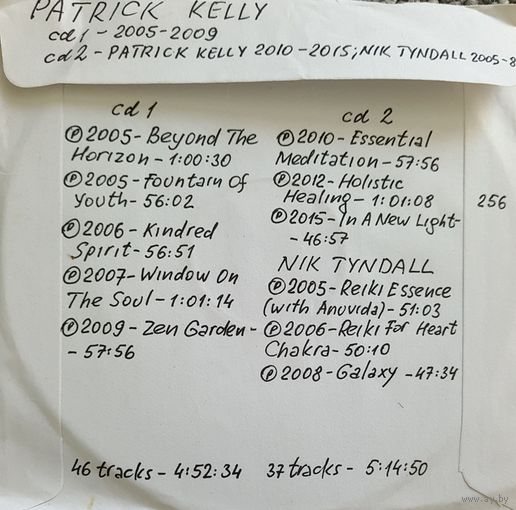 PATRICK KELLY
cd1 - 2005-2009
cd2 - PATRICK KELLY 2010-2015; NIK TYNDALL 2005-8
cd 1
Ⓟ2005 - Beyond The
Horizon - 1:00:30
Ⓟ2005 - Fountain Of
Youth - 56:02
Ⓟ2006 - Kindred
Spirit - 56:51
Ⓟ2007 - Window On
The Soul - 1:01:14
Ⓟ2009 - Zen Garden -
- 57:56
46 tracks - 4:52:34
cd 2
Ⓟ2010 - Essential
Meditation - 57:56
Ⓟ2012 - Holistic
Healing - 1:01:08
Ⓟ2015 - In A New Light -
- 46:57
NIK TYNDALL
Ⓟ2005 - Reiki Essence
(with Anuvida) - 51:03
Ⓟ2006 - Reiki For Heart
Chakra - 50:10
Ⓟ2008 - Galaxy - 47:34
37 tracks - 5:14:50
256
www.ay.by